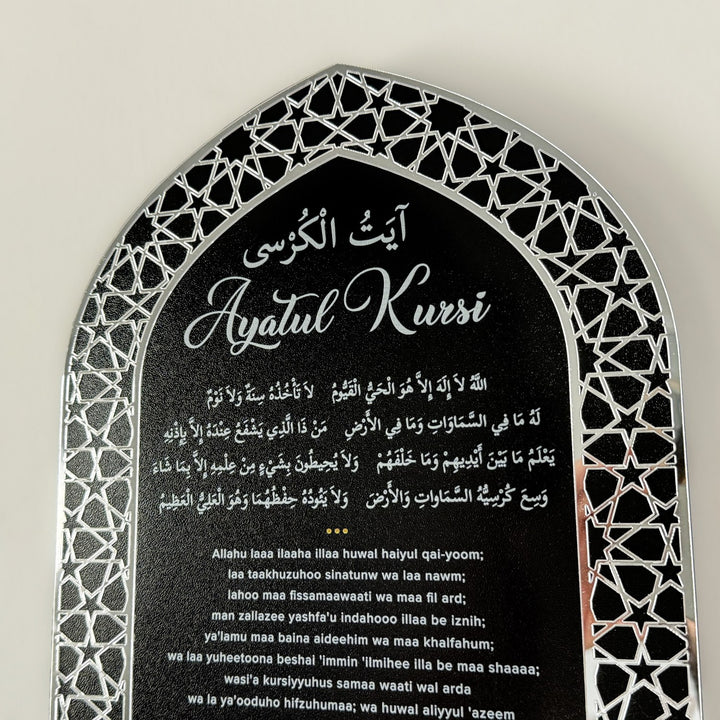 آيَتُ الْكُرْسى
Ayatul Kursi
اللّهُ لاَ إِلَهَ إِلاَّ هُوَ الْحَيُّ الْقَيُّومُ لاَ تَأْخُذُهُ سِنَةٌ وَلاَ نَوْمٌ
لَهُ مَا فِي السَّمَاوَاتِ وَمَا فِي الأَرْضِ مَنْ ذَا الَّذِي يَشْفَعُ عِنْدَهُ إِلاَّ بِإِذْنِهِ
يَعْلَمُ مَا بَيْنَ أَيْدِيهِمْ وَمَا خَلْفَهُمْ وَلاَ يُحِيطُونَ بِشَيْءٍ مِنْ عِلْمِهِ إِلاَّ بِمَا شَاءَ
وَسِعَ كُرْسِيُّهُ السَّمَاواتِ وَالأَرْضَ وَلاَ يَئُودُهُ حِفْظُهُمَا وَهُوَ الْعَلِيُّ الْعَظِيمُ
Allahu laaa ilaaha illaa huwal haiyul qai-yoom;
laa taakhuzuhoo sinatunw wa laa nawm;
lahoo maa fissamaawaati wa maa fil ard;
man zallazee yashfa'u indahooo illaa be iznih;
ya'lamu maa baina aideehim wa maa khalfahum;
wa laa yuheetoona beshai 'immin 'ilmihee illa be maa shaaaa;
wasi'a kursiyyuhus samaa waati wal arda
wa la ya'ooduho hifzuhumaa; wa huwal aliyyul 'azeem